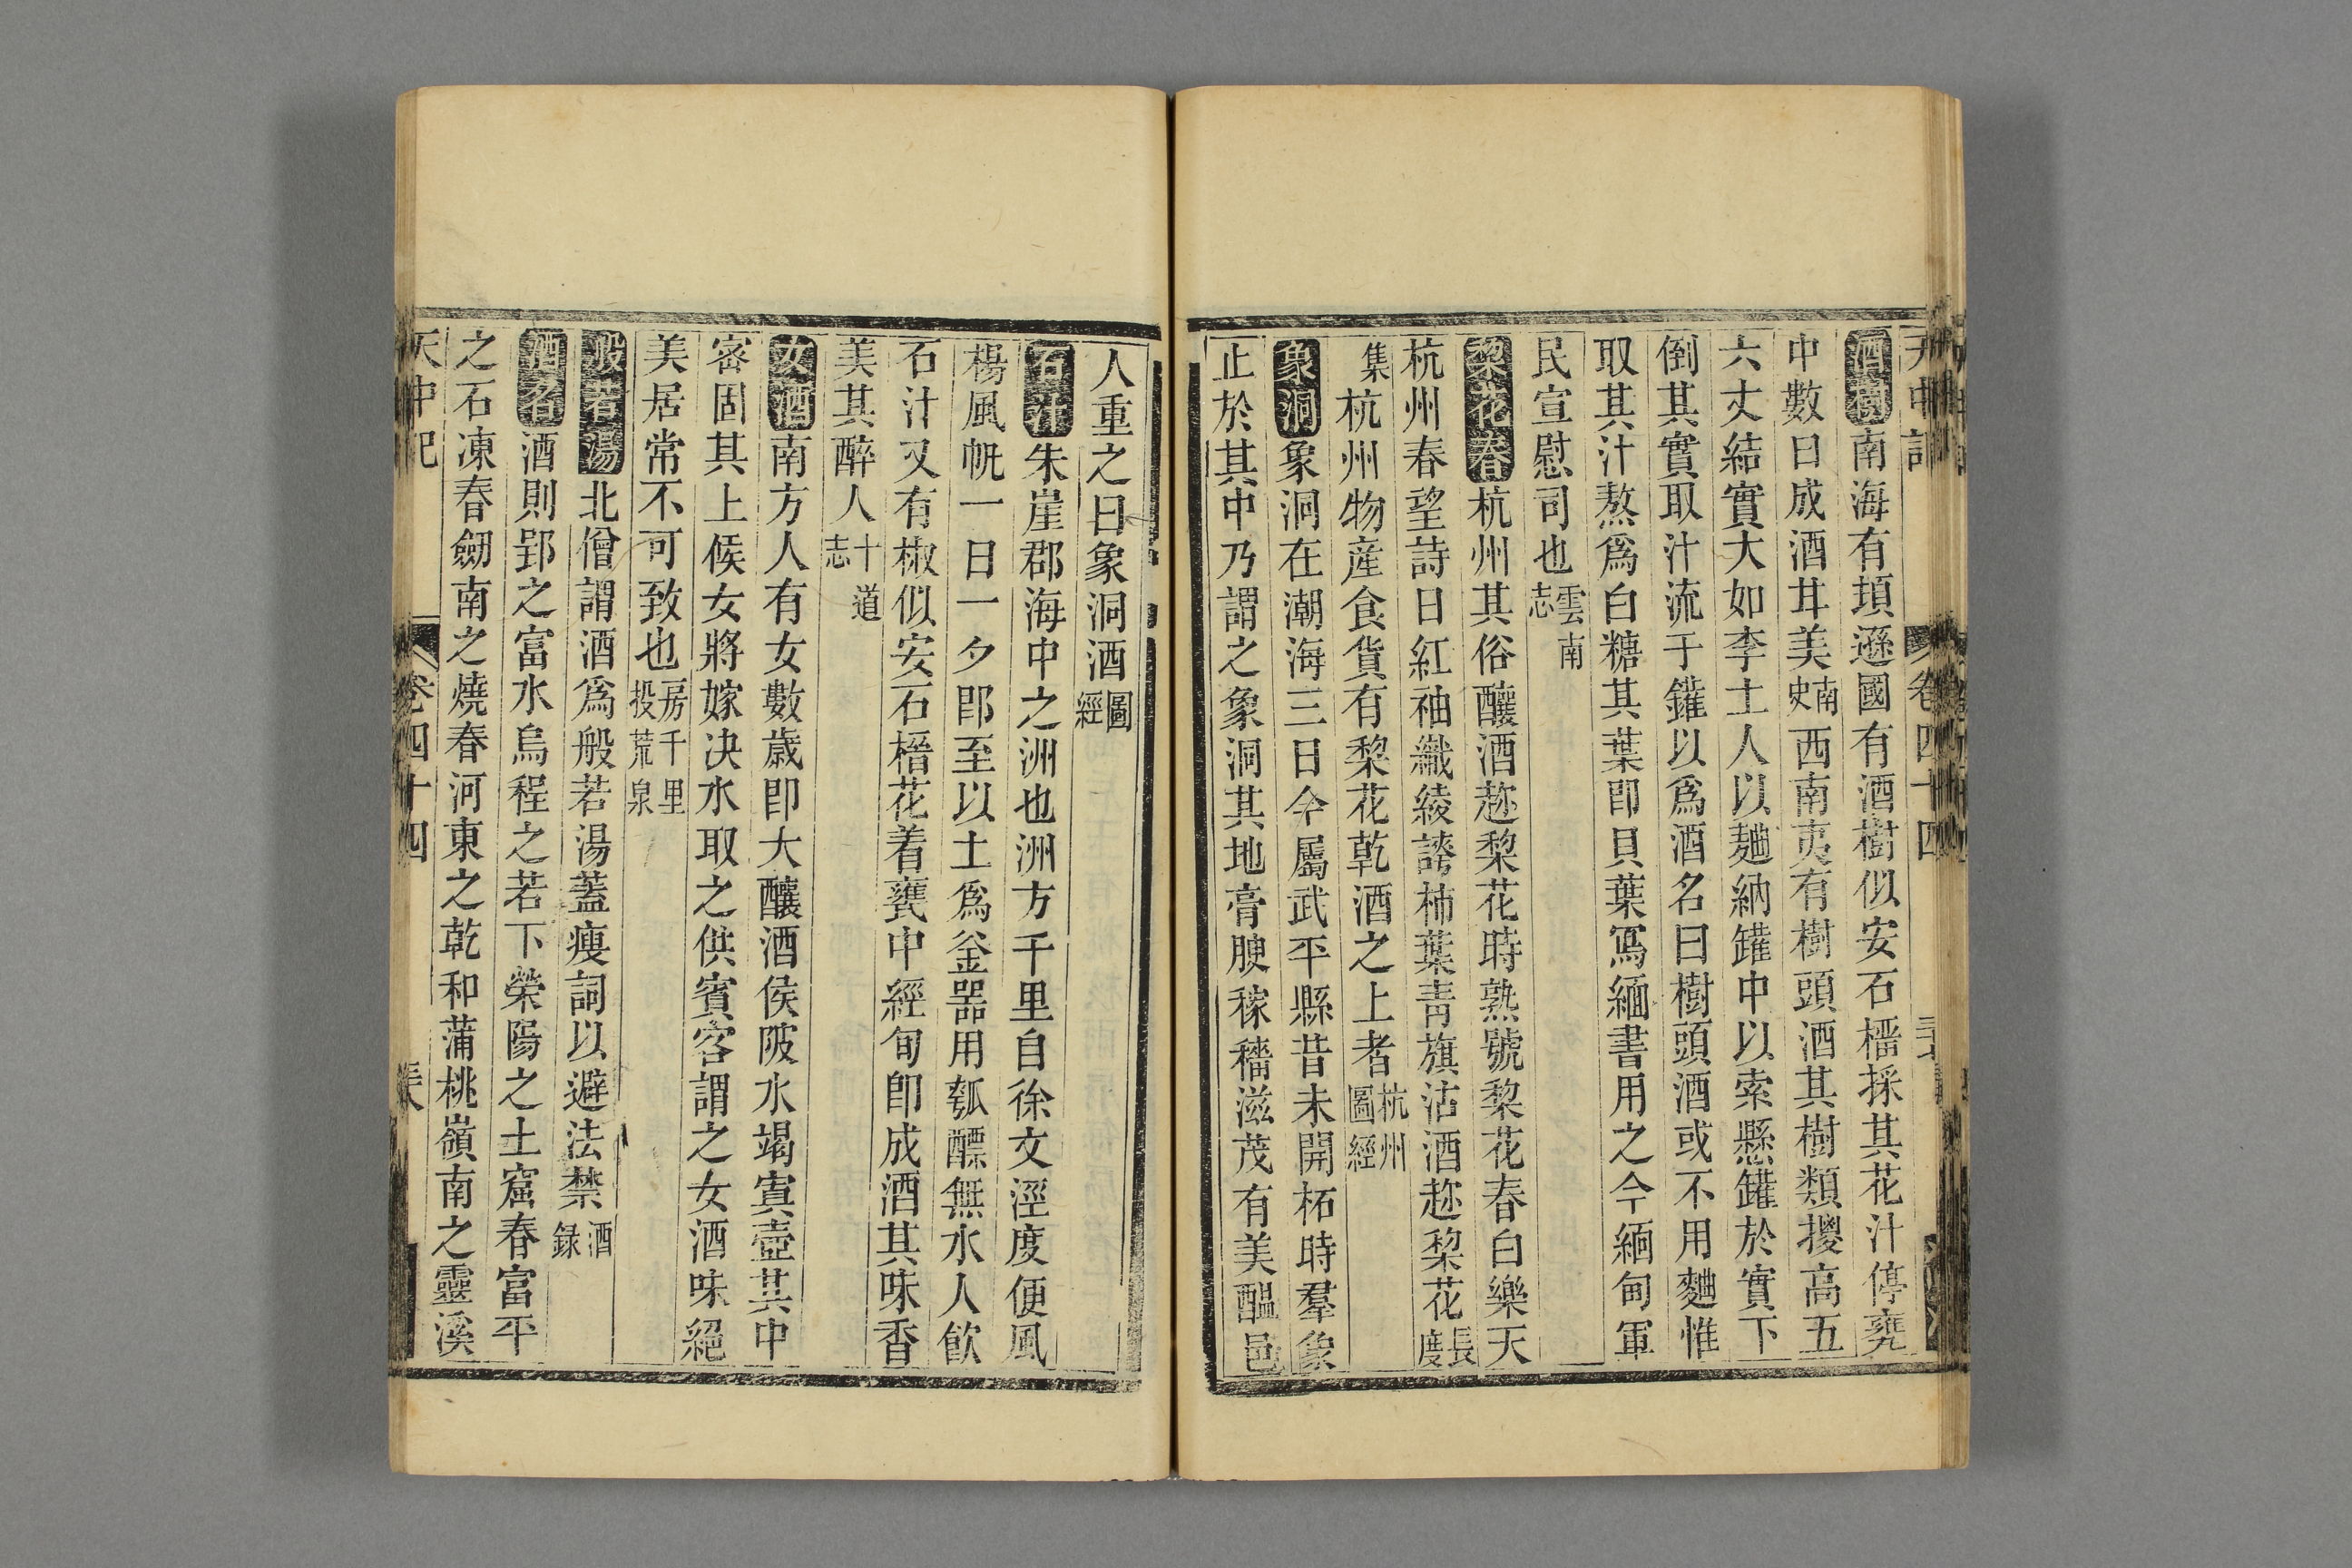 天中記 卷四十四
酒樹南海有頊遜國有酒樹似安石榴採其花汁停甕
中數日成酒甘美南史西南夷有樹頭酒其樹類椶高五
六丈結實大如李土人以麯納罐中以索懸罐於實下
倒其實取汁流于罐以爲酒名曰樹頭酒或不用麯惟
取其汁熬爲白糖其葉卽貝葉寫緬書用之今緬甸軍
民宣慰司也雲南志
梨花春杭州其俗釀酒趂梨花時熟號梨花春白樂天
杭州春望詩曰紅袖織綾誇柿葉青旗沽酒趂梨花長慶
集杭州物産食貨有梨花乾酒之上者杭州圖經
象洞象洞在潮海三日今屬武平縣昔未開柘時羣象
止於其中乃謂之象洞其地膏腴稼穡滋茂有美醞邑
人重之曰象洞酒圖經
石汁朱崖郡海中之洲也洲方千里自徐文涇度便風
楊風帆一日一夕卽至以土爲釡器用瓠醥無水人飲
石汁又有椒似安石榴花着甕中經旬卽成酒其味香
美其醉人十道志
女酒南方人有女數歲卽大釀酒侯陂水竭寘壺其中
密固其上候女將嫁决水取之供賓客謂之女酒味絕
美居常不可致也房千里投荒泉
般若湯北僧謂酒爲般若湯蓋瘦詞以避法禁酒録
酒名酒則郢之富水烏程之若下榮陽之土窟春富平
之石凍春劒南之燒春河東之乾和蒲桃嶺南之靈溪
天中記 卷四十四